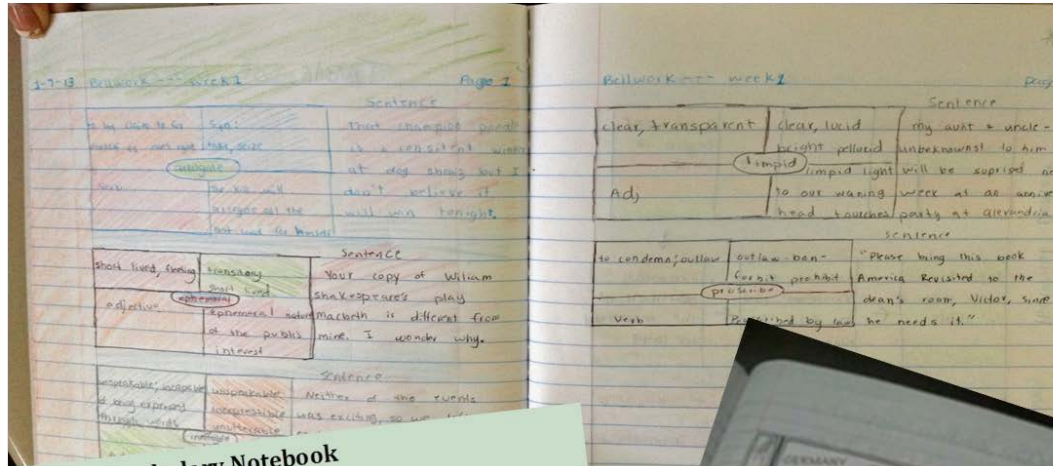 1-7-13 Bellwork --- week 1 Page 1
Sentence
Syn:
take, seize
That champion poodle
is a consistent winner
at dog shows but I
don't believe it
will win tonight.
Sentence
short lived, fleeing
transitory
short lived
ephemeral
adjective
ephemeral nature
of the publis
interest
Your copy of Wiliam
shakespeare's play
Macbeth is different from
mine. I wonder why.
Sentence
unspeakable; incapable
of being expressed
through words
unspeakable
inexpressible
unutterable
Neither of the events
was exciting, so we
Notebook
Bellwork --- week 1
Sentence
clear, transparent
clear, lucid
bright pellucid
limpid
Adj
limpid light
to our waning
head touches
my aunt & uncle-
unbeknownst to him
will be suprised
week at an
party at alexandria
sentence
to condemn; outlaw
outlaw-ban-
forbit prohibit
proscribe
Verb
by
"Please bing this book
America Revisited to the
dean's room, Victor, since
he needs it."
GERMANY